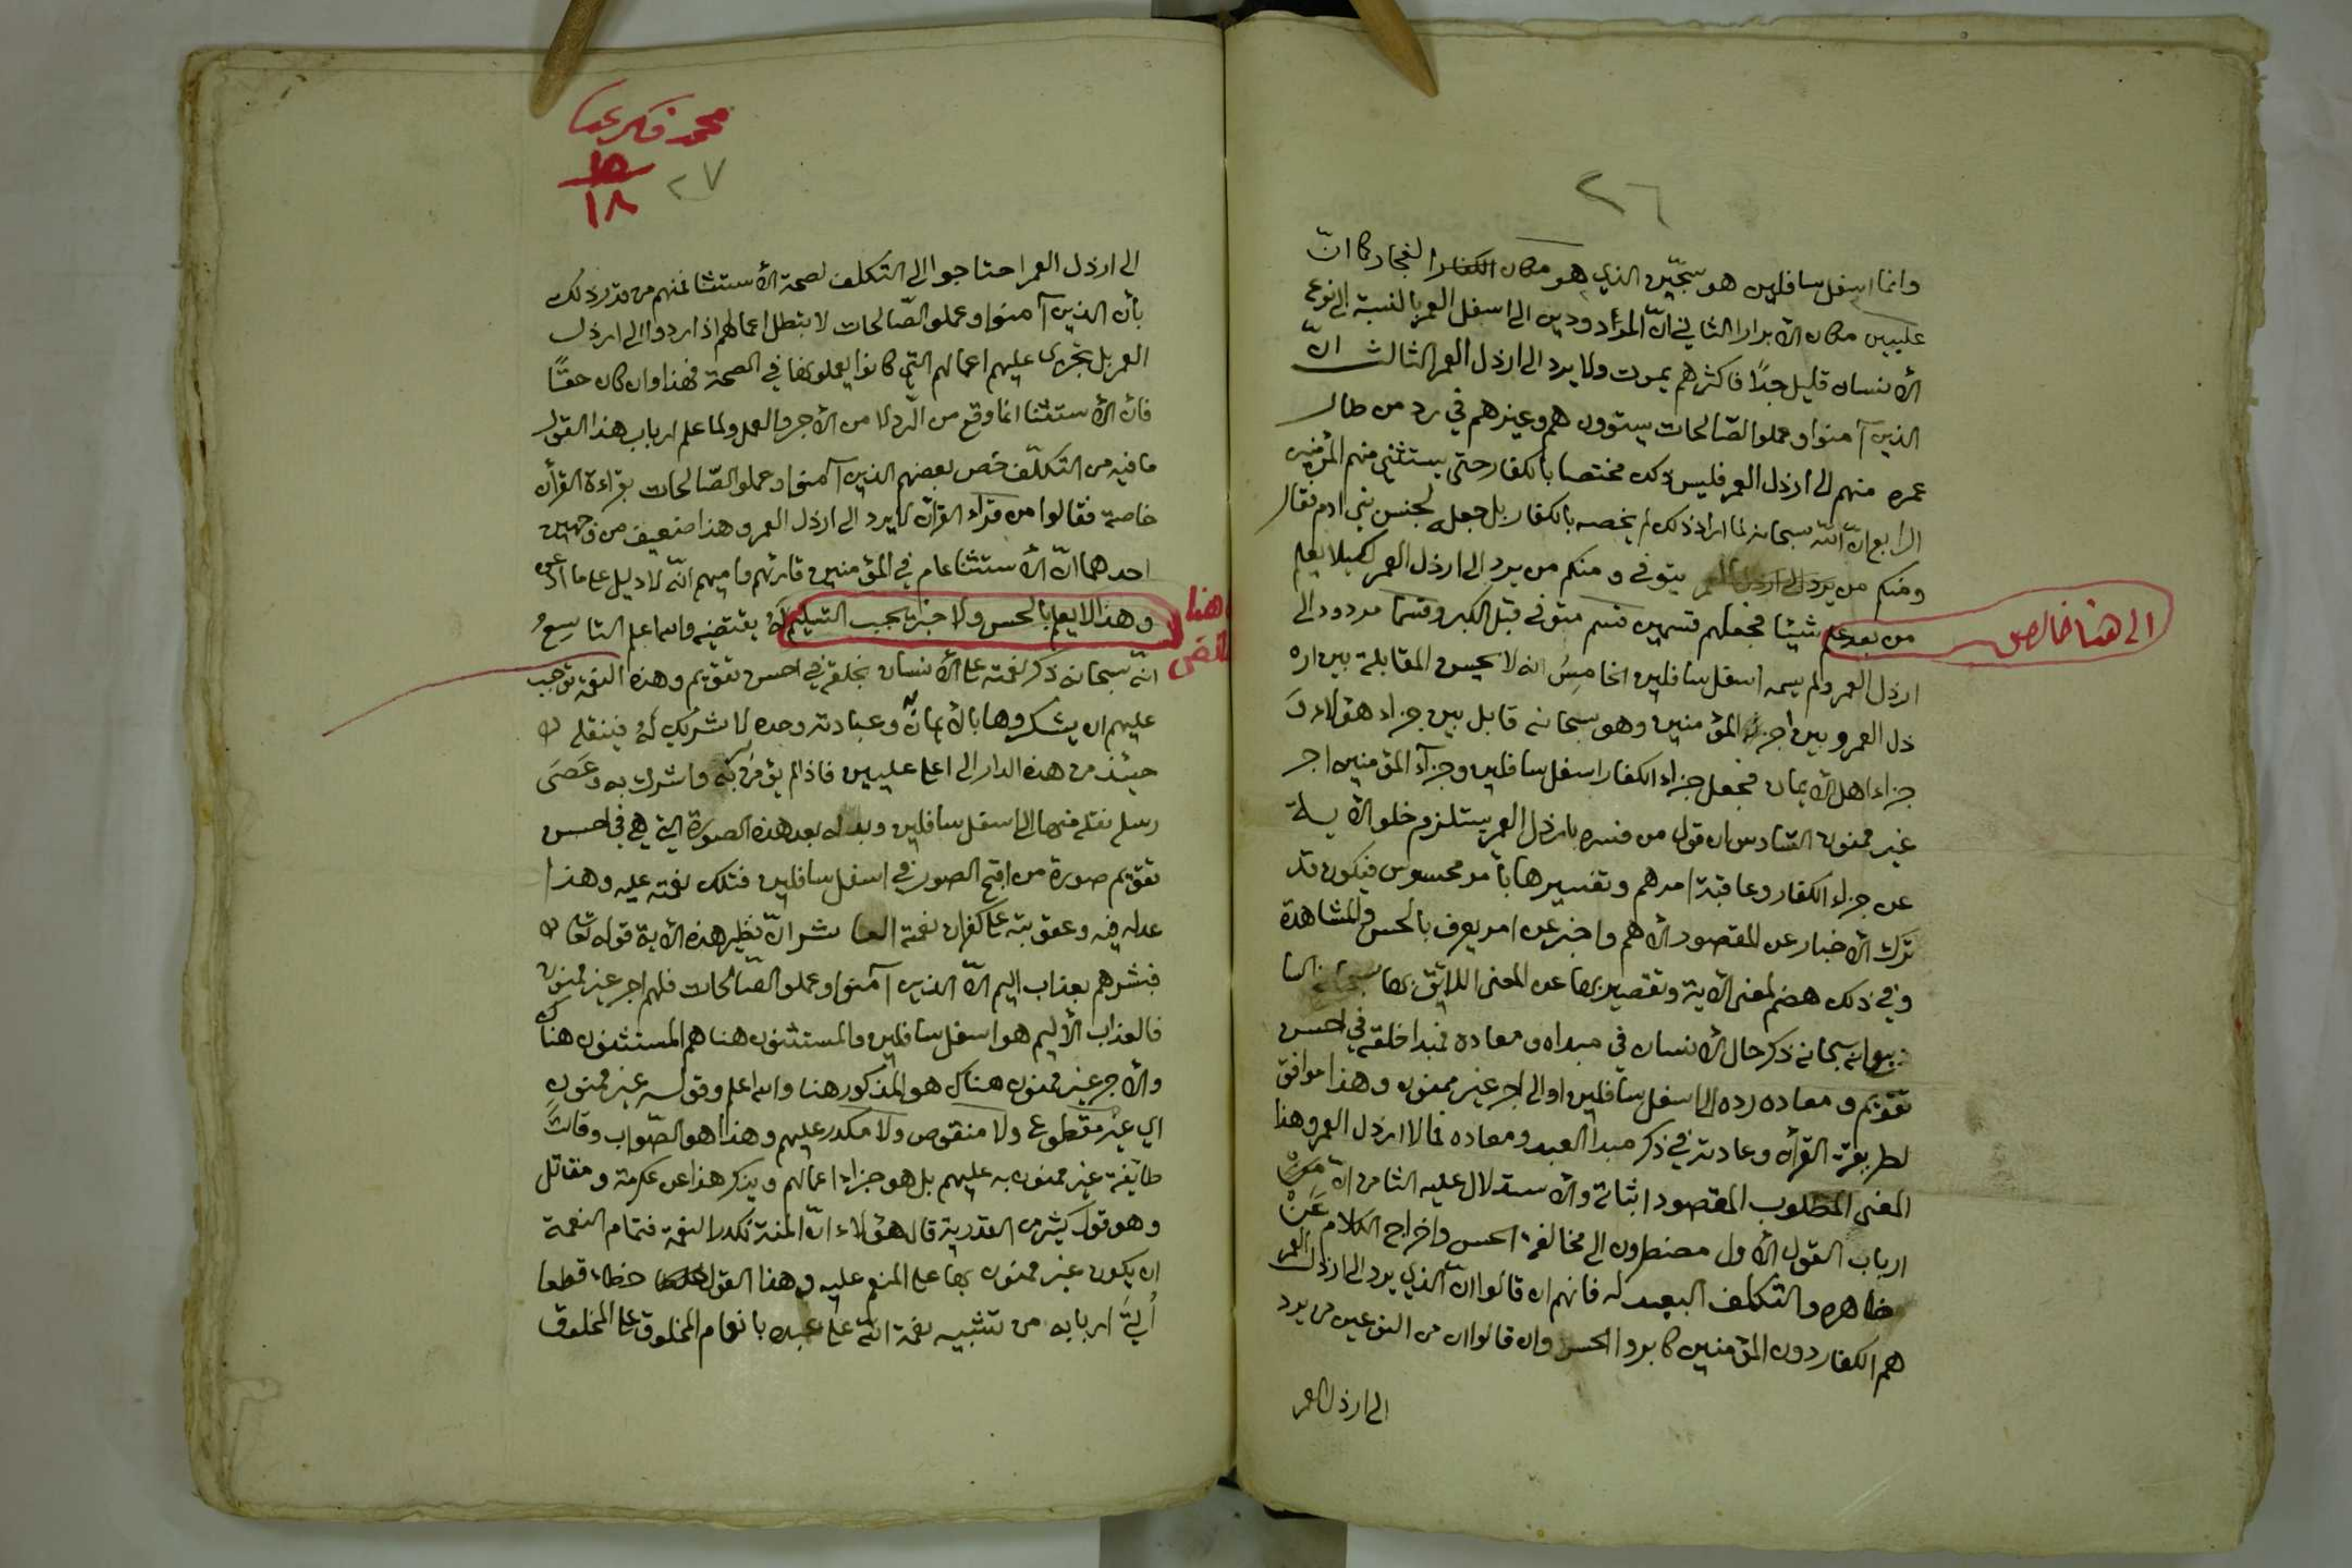 ٢٦
وانما اسفل سافلين هو سجّين الذي هو مكان الكفار الفجار كما انّ
عليين مكان الأبرار الثاني انّ المردودين الى اسفل العمر بالنسبة الى نوع
الأنسان قليل جدًا فاكثرهم يموت ولا يرد الى ارذل العمر الثالث انّ
الذين آمنوا وعملوا الصّالحات يستوون هم وغيرهم في رد من طال
عمره منهم الى ارذل العمر فليس ذلك مختصا بالكفار حتى يستثني منهم المؤمنين
الرابع انّ الله سبحانه لما اراد ذلك لم يخصه بالكفار بل جعله لجنس بني ادم فقال
ومنكم من يتوفى ومنكم من يرد الى ارذل العمر لكيلا يعلم
من بعد علم شيئا فجعلهم قسمين قسم متوفى قبل الكبر وقسما مردود الى
الى هنا خالص
ارذل العمر ولم يسمه اسفل سافلين الخامسُ انه لا يحسن المقابلة بين ار
ذل العمر وبين اجر المؤمنين وهو سبحانه قابل بين جزاء هؤلاء و
جزاء اهل الأيمان فجعل جزاء الكفار اسفل سافلين وجزآء المؤمنين اجر
غير ممنون السّادس ان قول من فسره بارذل العمر يستلزم خلو الأية
عن جزاء الكفار وعاقبة امرهم وتفسيرها بأمر محسوس فيكون قد
ترك الأخبار عن المقصود الأهم واخبر عن امر يعرف بالحس والمشاهدة
وفي ذلك هضم لمعنى الأية وتقصير بها عن المعنى اللائق بها السا
بع انه سبحانه ذكر حال الأنسان في مبداه ومعاده فمبداه خلقه في احسن
تقويم ومعاده رده الى اسفل سافلين او الى اجر غير ممنون وهذا موافق
لطريقة القرأن وعادته في ذكر مبدا العبد ومعاده فما لارذل العمر وهذا
المعنى المطلوب المقصود اثباته والأستدلال عليه الثامن انّ
ارباب القول الأول مضطرون الى مخالفة الحس واخراج الكلام عَنْ
ظاهره والتكلف البعيد له فانهم ان قالوا انّ الذي يرد الى ارذل العمر
هم الكفار دون المؤمنين كابروا الحس وان قالوا ان من النوعين من يرد
الى ارذل العمر
محمد فكري
١٥
١٨
٢٧
الى ارذل العمر احتاجوا الى التكلف لصحة الأستثنا فمنهم من قدر ذلك
بأن الذين آمنوا وعملوا الصّالحات لا يبطل اعمالهم اذا ردوا الى ارذل
العمر بل تجرى عليهم اعمالهم التي كانوا يعملونها في الصحة فهذا وان كان حقًّا
فان الأستثنا انما وقع من الرّد لا من الأجر والعمل ولما علم ارباب هذا القول
ما فيه من التكلّف خص بعضهم الذين آمنوا وعملوا الصّالحات بقراءة القرأن
خاصة فقالوا من قراء القرأن لا يرد الى ارذل العمر وهذا ضعيف من وجهين
احدهما انّ الأستثنا عام في المؤمنين قارئهم واميهم انّه لا دليل على ما ادعوه
وهذا لا يعلم بالحس ولا خبر يجب التسليم لَهُ يقتضيه والله اعلم التا سِعُ
هنا
ناقص
انّه سبحانه ذكر نعمته على الأنسان بخلقه في احسن تقويم وهذه النعمة توجب
عليهم ان يشكروها بالأيمان به وعبادته وحده لا شريك لَهُ فينقله
حينئذ من هذه الدار الى اعلى عليين فاذا لم يؤمن به واشرك به وعَصَى
رسله نقله منها الى اسفل سافلين وبدله بعد هذه الصورة التي هي في احسن
تقويم صورة من اقبح الصور في اسفل سافلين فتلك نعمته عليه وهذا
عدله فيه وعقوبته على كفران نعمته العا شر انّ نظير هذه الأية قوله تعالى
فبشرهم بعذاب اليم الّا الذين آمنوا وعملوا الصّالحات فلهم اجر غير ممنون
فالعذاب الأليم هو اسفل سافلين والمستثنون هنا هم المستثنون هناك
والأجر غير ممنون هناك هو المذكور هنا والله اعلم وقوله غير ممنون
اي غير مقطوع ولا منقوص ولا مكدر عليهم وهذا هو الصّواب وقالتْ
طائفة غير ممنون به عليهم بل هو جزاء اعمالهم ويذكر هذا عن عكرمة ومقاتل
وهو قول كثير من القدرية قال هؤلاء انّ المنة تكدر النعمة فتمام النعمة
ان يكون غير ممنون بها على المنعم عليه وهذا القول خطاء قطعا
أُتِيَ اربابه من تشبيه نعمة الله على عبده بانعام المخلوق على المخلوق